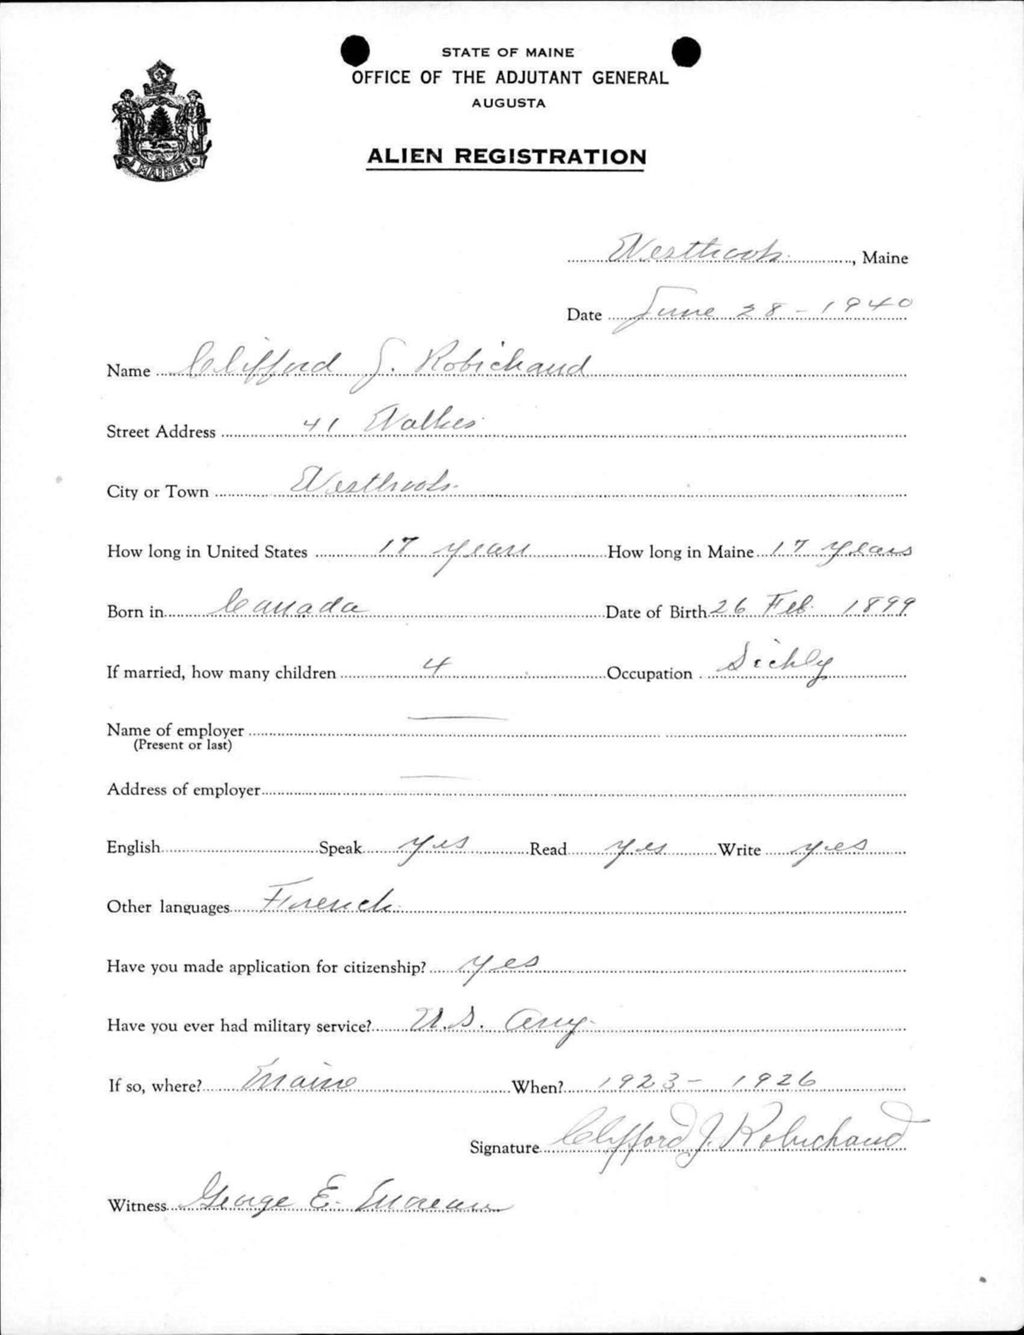 STATE OF MAINE
OFFICE OF THE ADJUTANT GENERAL
AUGUSTA
ALIEN REGISTRATION
MAINE
Westbrook, Maine
Date June 28 - 1940
Name Clifford J. Robichaud
Street Address 41 Walker
City or Town Westbrook
How long in United States 17 years How long in Maine 17 years
Born in Canada Date of Birth 26 Feb. 1899
If married, how many children 4 Occupation Sickly
Name of employer
(Present or last)
Address of employer
English Speak yes Read yes Write yes
Other languages French
Have you made application for citizenship? yes
Have you ever had military service? U.S. Army
If so, where? Maine When? 1923 - 1926
Signature Clifford J. Robichaud
Witness George E. Moreau